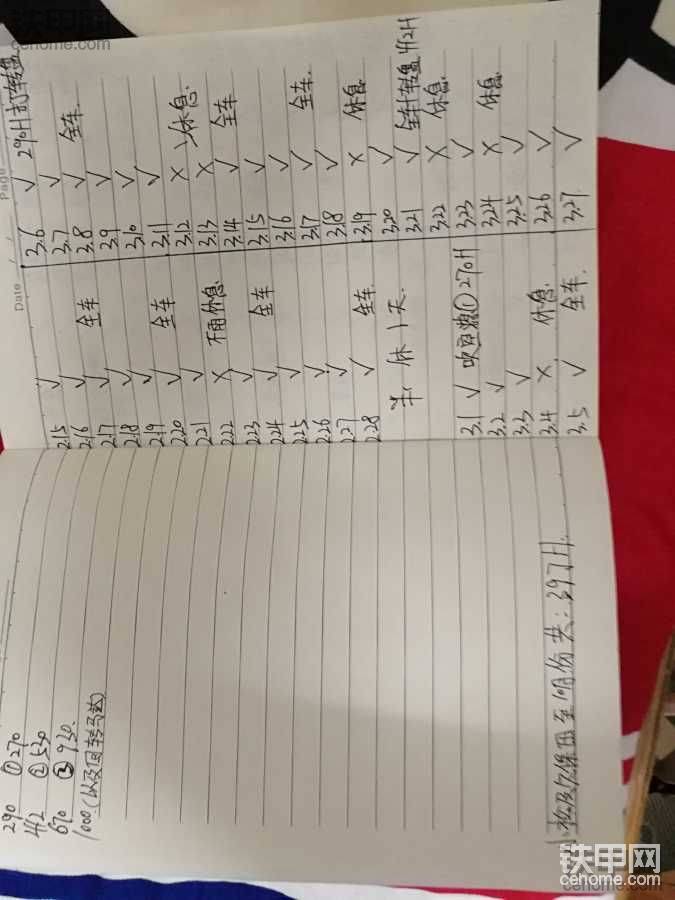 290 ①270
412 ②530
670 ③930.
1000(以及回转马达)
2.15 √
2.16 √ 全车
2.17 √
2.18 √
2.19 √ 全车
2.20 √
2.21 √
2.22 × 下雨休息.
2.23 √ 全车
2.24 √
2.25 √
2.26 √
2.27 √
2.28 √ 全车
休1天.
3.1 √ ①270H
3.2 √
3.3 √
3.4 × 休息.
3.5 √ 全车.
Date
Page
3.6 √ 290H 打转盘
3.7 √ 全车
3.8 √
3.9 √
3.10 √
3.11 √
3.12 × 休息.
3.13 ×
3.14 √ 全车
3.15 √
3.16 √
3.17 √ 全车.
3.18 √
3.19 × 休息.
3.20 √
3.21 √ 全车+转盘 412H
3.22 × 休息.
3.23 √
3.24 × 休息
3.25 √
3.26 √
3.27 √
共:397H.
铁甲网
cehome.com
铁甲网
cehome.com